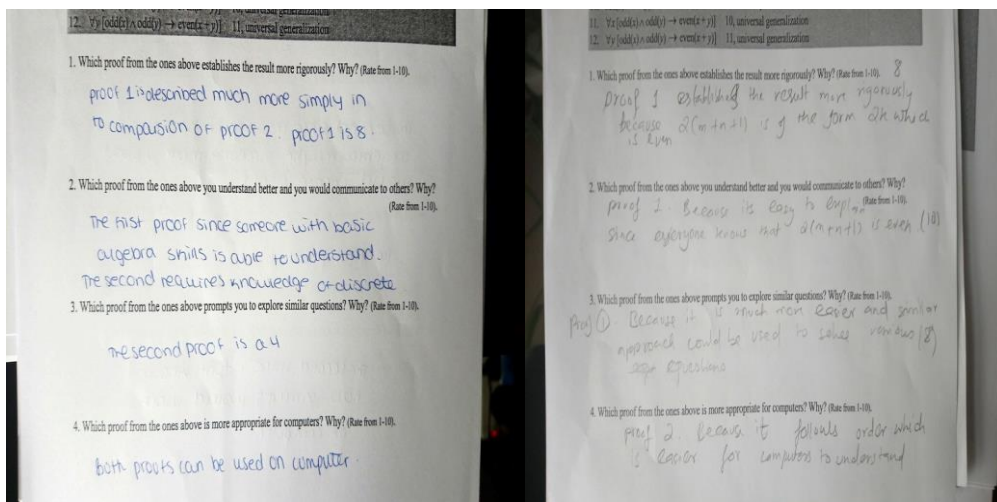 12. ∀y [odd(x) ∧ odd(y) → even(x + y)] 11, universal generalization
1. Which proof from the ones above establishes the result more rigorously? Why? (Rate from 1-10).
proof 1 is described much more simply in
to comparsion of proof 2. proof 1 is 8.
2. Which proof from the ones above you understand better and you would communicate to others? Why?
(Rate from 1-10).
The first proof since someone with basic
algebra skills is able to understand.
The second requires knowledge of discrete
3. Which proof from the ones above prompts you to explore similar questions? Why? (Rate from 1-10).
The second proof is a 4
4. Which proof from the ones above is more appropriate for computers? Why? (Rate from 1-10).
both proofs can be used on computer.
11. ∀x [odd(x) ∧ odd(y) → even(x + y)] 10, universal generalization
12. ∀y [odd(x) ∧ odd(y) → even(x + y)] 11, universal generalization
1. Which proof from the ones above establishes the result more rigorously? Why? (Rate from 1-10). 8
Proof 1 the result more rigorously
because 2(m+n+1) is of the form 2k which
is even
2. Which proof from the ones above you understand better and you would communicate to others? Why?
(Rate from 1-10).
proof 1. Because its easy to explain
since everyone knows that 2(m+n+1) is even (10)
3. Which proof from the ones above prompts you to explore similar questions? Why? (Rate from 1-10).
Proof 1. Because it is much more easier and similar
approach could be used to solve various (8)
questions
4. Which proof from the ones above is more appropriate for computers? Why? (Rate from 1-10).
proof 2. Because it follows order which
is easier for computers to understand